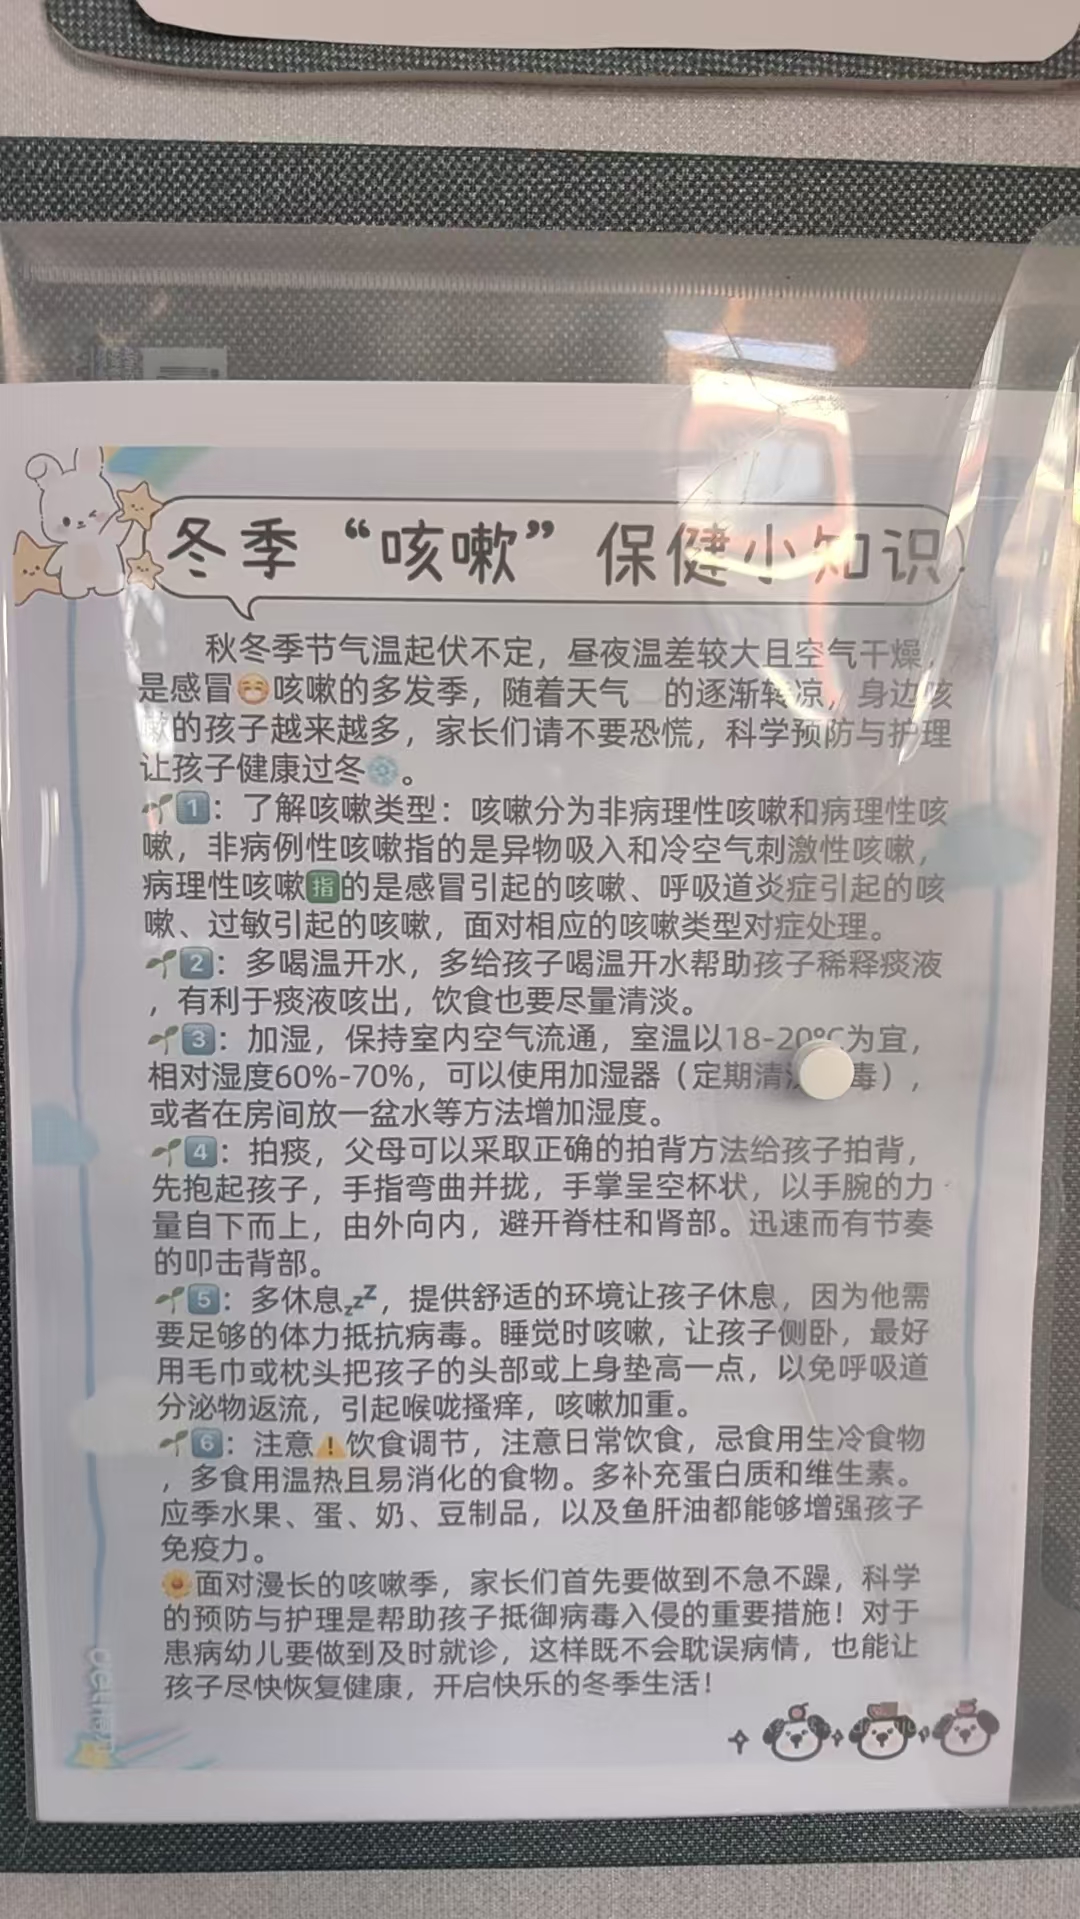 冬季“咳嗽”保健小知识
秋冬季节气温起伏不定，昼夜温差较大且空气干燥，
是感冒😷咳嗽的多发季，随着天气 的逐渐转凉，身边咳
嗽的孩子越来越多，家长们请不要恐慌，科学预防与护理
让孩子健康过冬❄。
🌱1️⃣：了解咳嗽类型：咳嗽分为非病理性咳嗽和病理性咳
嗽，非病例性咳嗽指的是异物吸入和冷空气刺激性咳嗽，
病理性咳嗽指的是感冒引起的咳嗽、呼吸道炎症引起的咳
嗽、过敏引起的咳嗽，面对相应的咳嗽类型对症处理。
🌱2️⃣：多喝温开水，多给孩子喝温开水帮助孩子稀释痰液
，有利于痰液咳出，饮食也要尽量清淡。
🌱3️⃣：加湿，保持室内空气流通，室温以18-20℃为宜，
相对湿度60%-70%，可以使用加湿器（定期清 毒），
或者在房间放一盆水等方法增加湿度。
🌱4️⃣：拍痰，父母可以采取正确的拍背方法给孩子拍背，
先抱起孩子，手指弯曲并拢，手掌呈空杯状，以手腕的力
量自下而上，由外向内，避开脊柱和肾部。迅速而有节奏
的叩击背部。
🌱5️⃣：多休息💤，提供舒适的环境让孩子休息，因为他需
要足够的体力抵抗病毒。睡觉时咳嗽，让孩子侧卧，最好
用毛巾或枕头把孩子的头部或上身垫高一点，以免呼吸道
分泌物返流，引起喉咙搔痒，咳嗽加重。
🌱6️⃣：注意⚠️饮食调节，注意日常饮食，忌食用生冷食物
，多食用温热且易消化的食物。多补充蛋白质和维生素。
应季水果、蛋、奶、豆制品，以及鱼肝油都能够增强孩子
免疫力。
🌼面对漫长的咳嗽季，家长们首先要做到不急不躁，科学
的预防与护理是帮助孩子抵御病毒入侵的重要措施！对于
患病幼儿要做到及时就诊，这样既不会耽误病情，也能让
孩子尽快恢复健康，开启快乐的冬季生活！